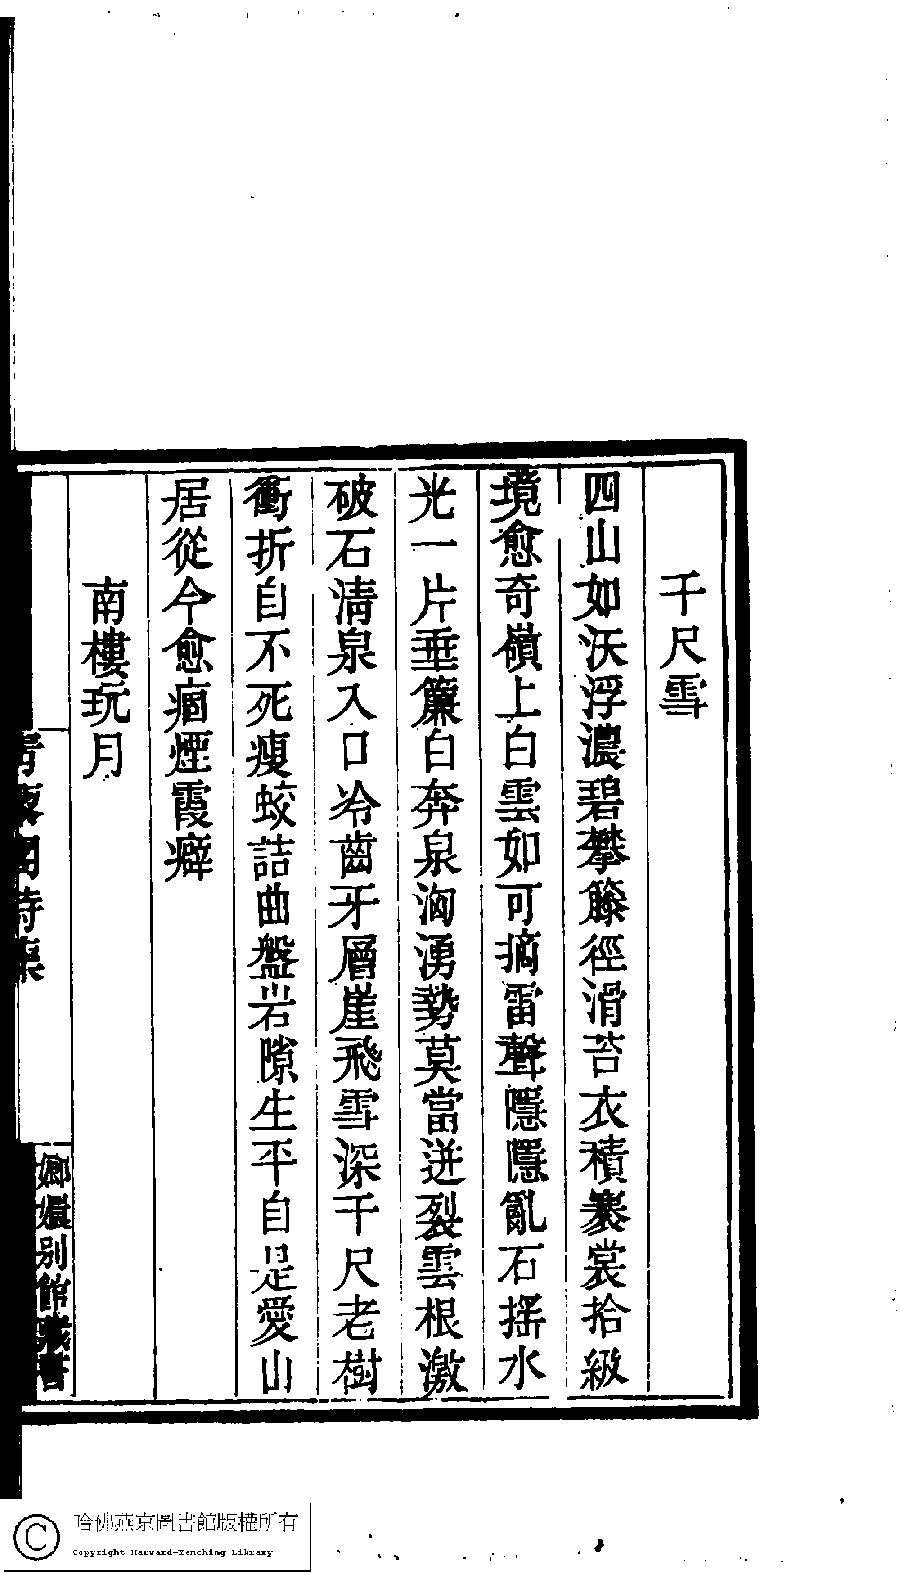 千尺雪
四山如沃浮濃碧攀藤徑滑苔衣積褰裳拾級
境愈奇嶺上白雲如可摘雷聲隱隱亂石搖水
光一片垂簾白奔泉洶湧勢莫當迸裂雲根激
破石清泉入口冷齒牙層崖飛雪深千尺老樹
衝折自不死瘦蛟詰曲盤岩隙生平自是愛山
居從今愈痼煙霞癖
南樓玩月
詩集
嫏嬛別館藏書
哈佛燕京圖書館版權所有
Copyright Harvard-Yenching Library